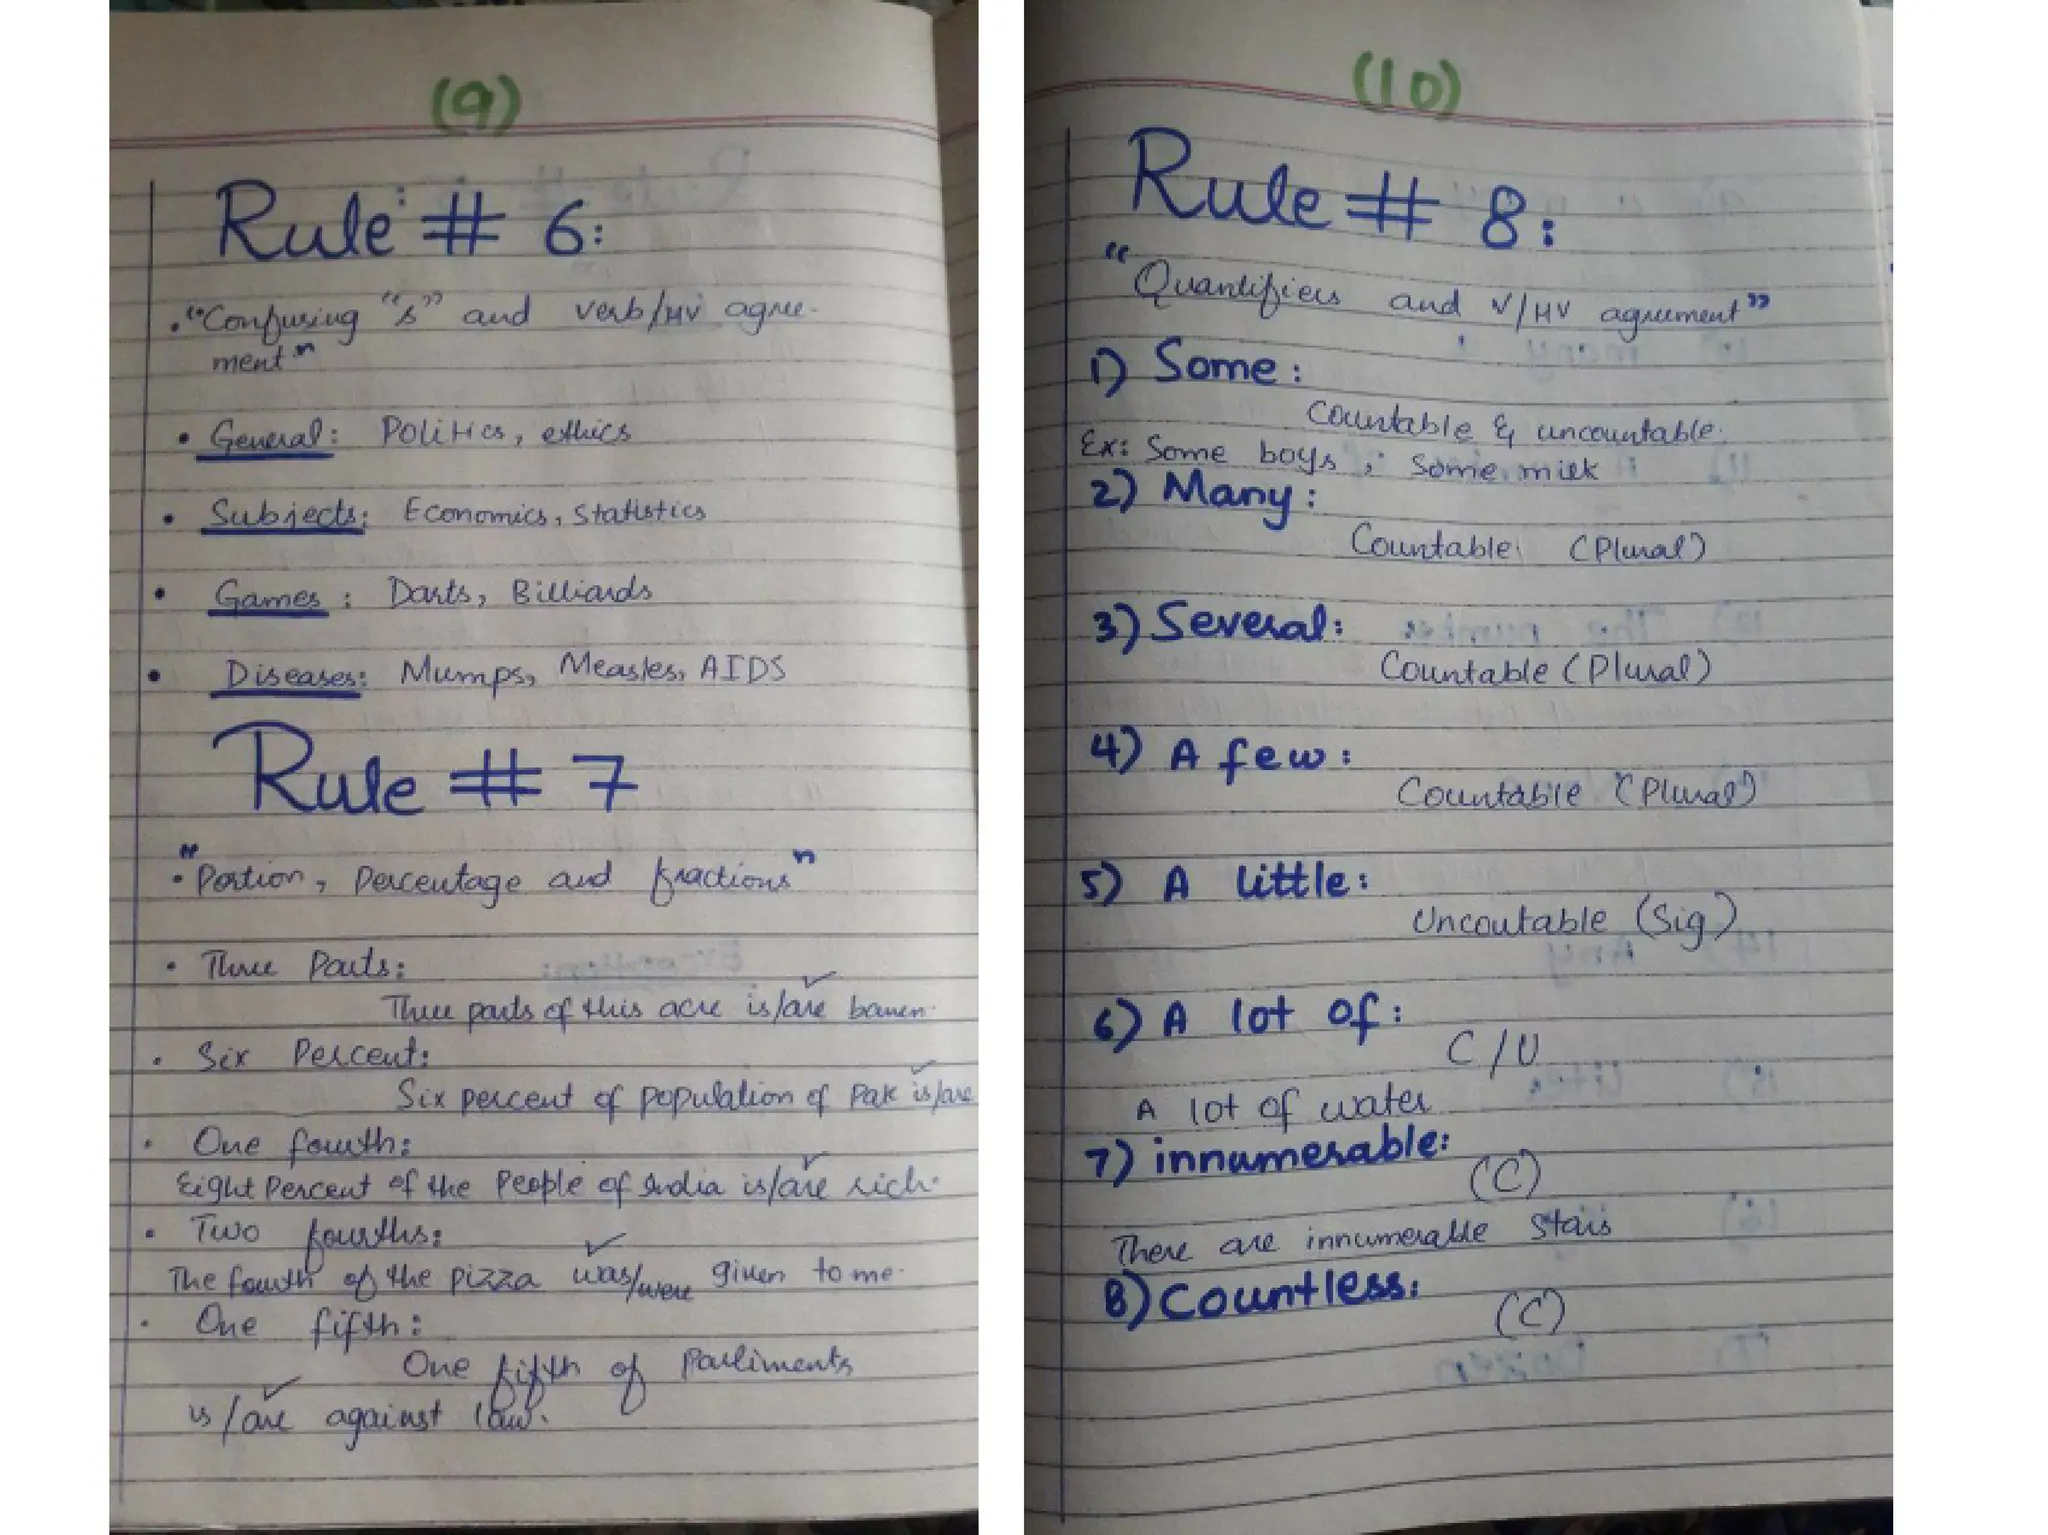 (9)
Rule # 6:
"Confusing "s" and verb/HV agree-
ment"
• General: Politics, ethics
• Subjects: Economics, Statistics
• Games: Darts, Billiards
• Diseases: Mumps, Measles, AIDS
Rule # 7
"Portion, Percentage and fractions"
• Three Parts:
Three parts of this acre is/are barren.
• Six Percent:
Six percent of population of Pak is/are
• One fourth:
Eight Percent of the People of India is/are rich.
• Two fourths:
The fourth of the pizza was/were given to me.
• One fifth:
One fifth of Parliments
is/are against law.
(10)
Rule # 8:
"Quantifiers and V/HV agreement"
1) Some:
Countable & uncountable.
Ex: Some boys, Some milk
2) Many:
Countable (Plural)
3) Several:
Countable (Plural)
4) A few:
Countable (Plural)
5) A little:
Uncoutable (Sig)
6) A lot of:
C/U
A lot of water
7) innumerable:
(C)
There are innumerable Stars
8) Countless:
(C)